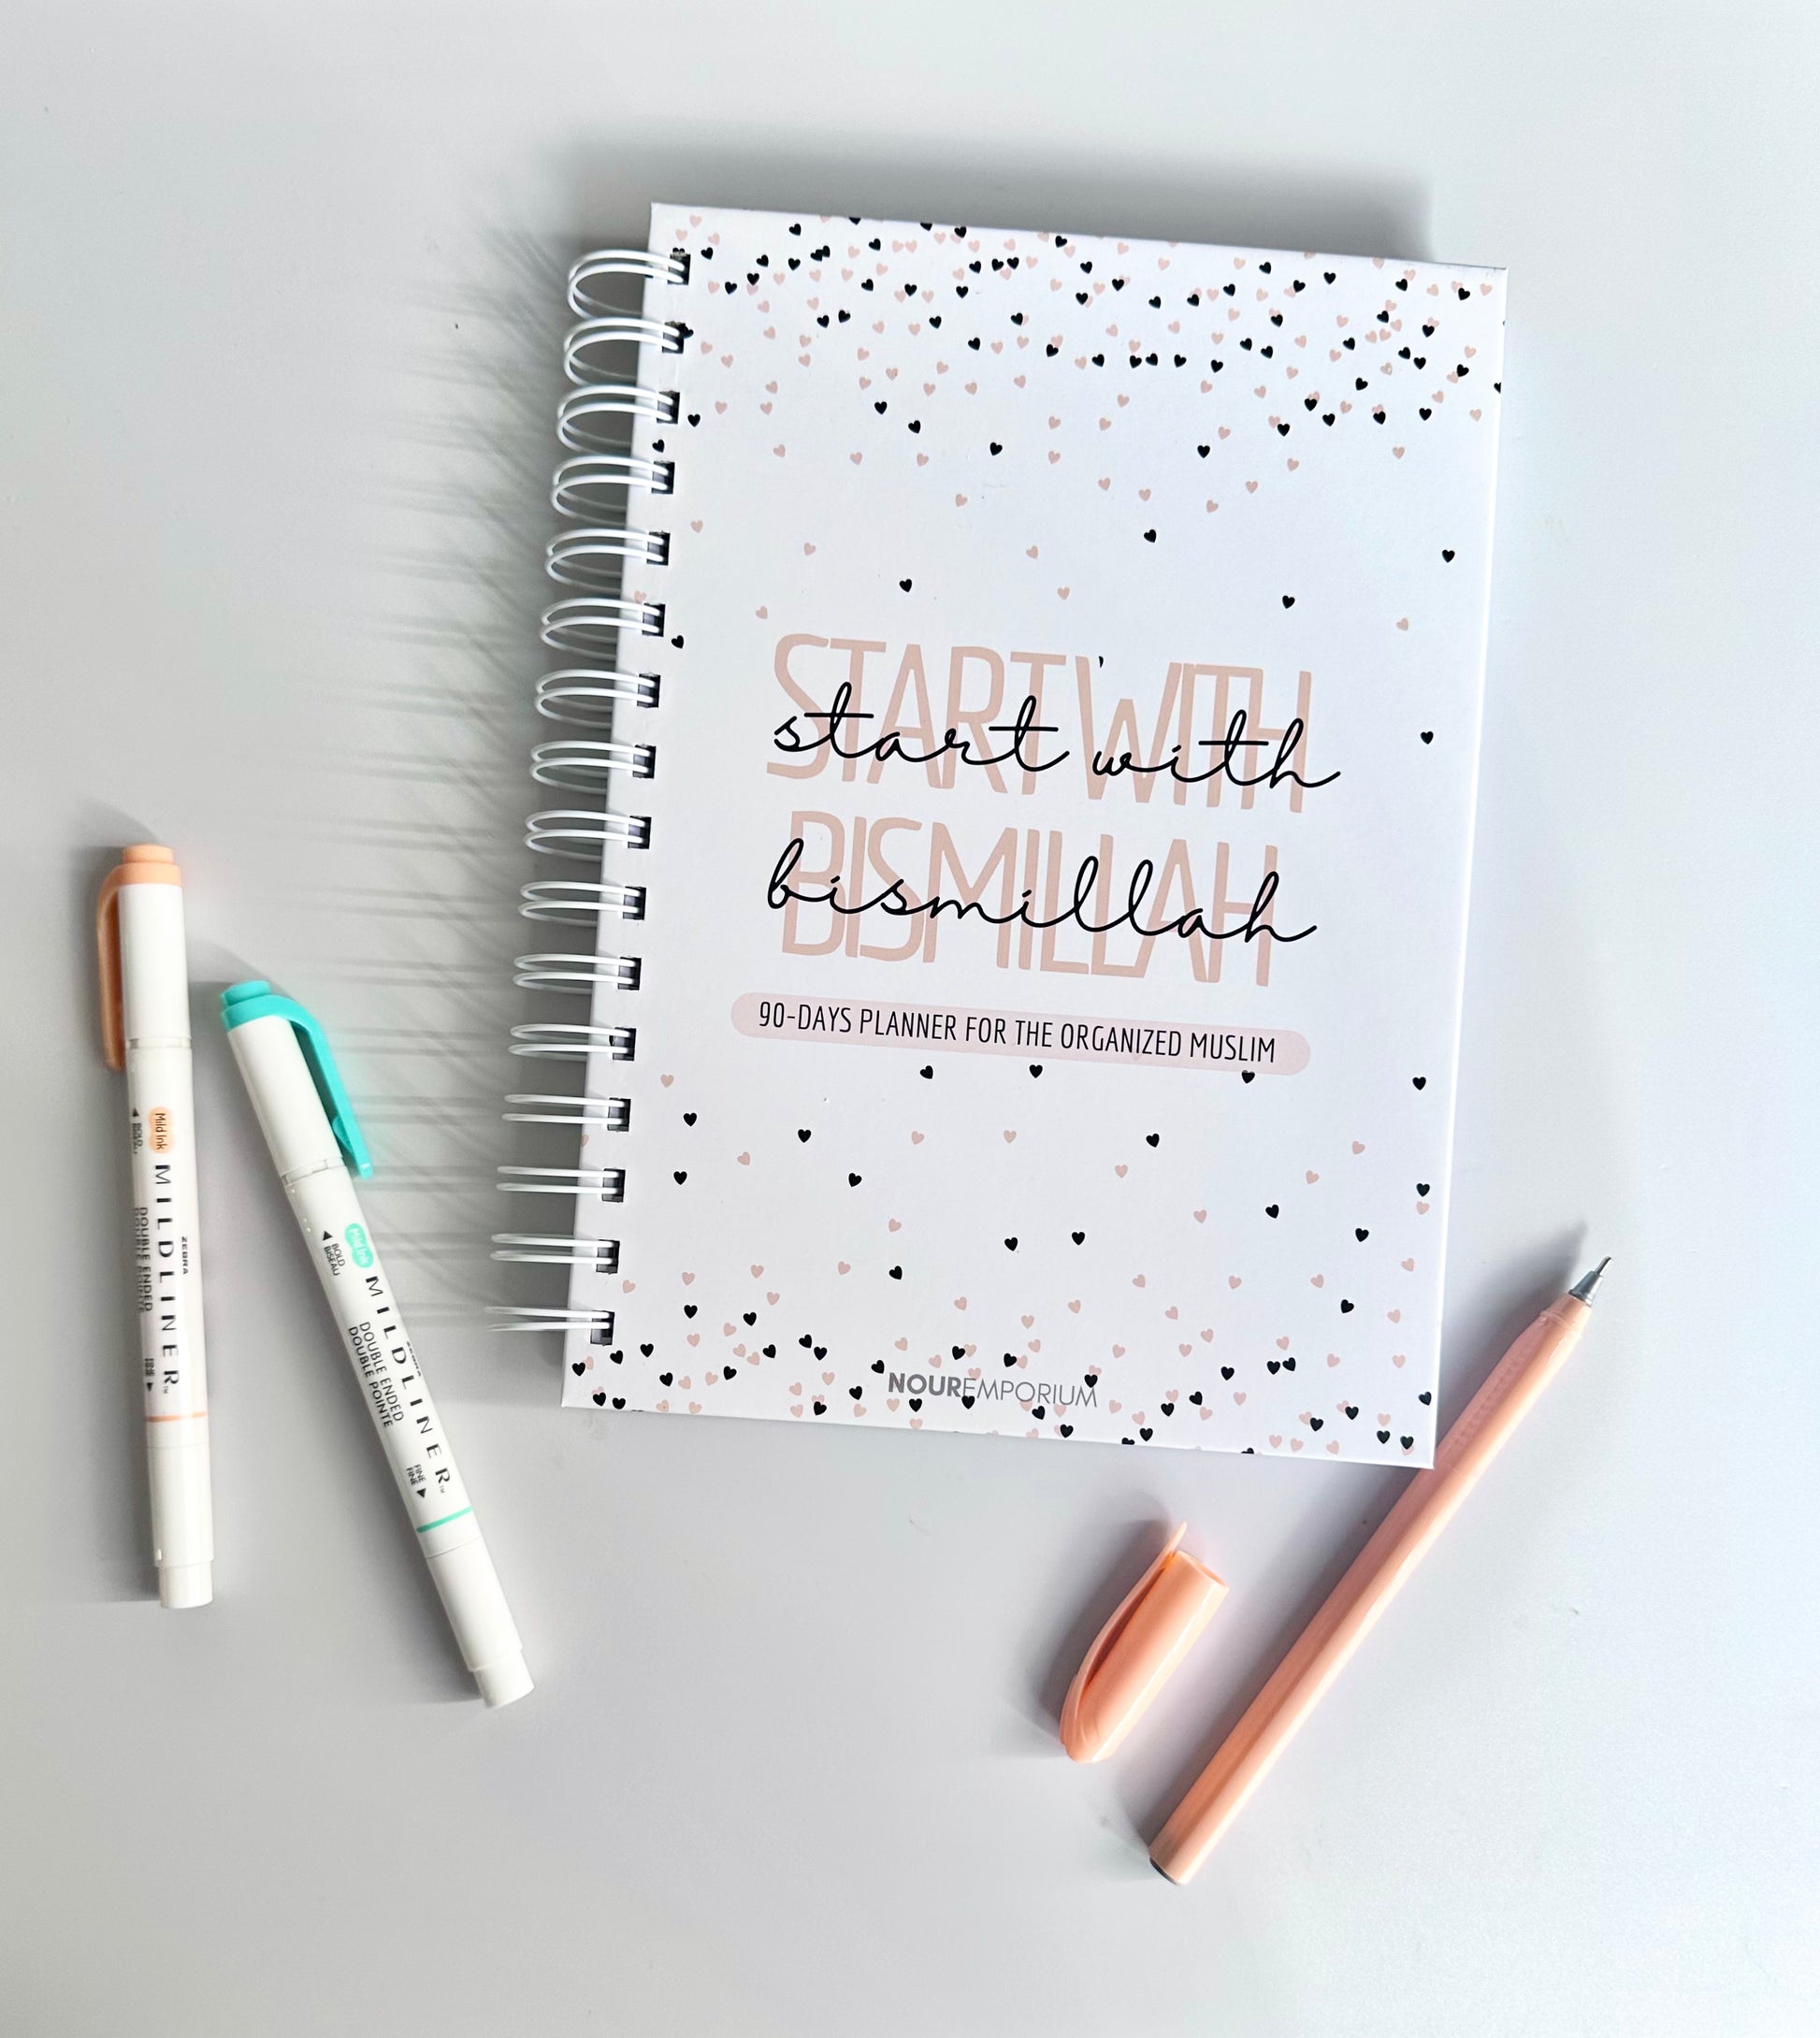 START WITH
start with
BISMILLAH
bismillah
90-DAYS PLANNER FOR THE ORGANIZED MUSLIM
NOUREMPORIUM
Mild Ink
BOLD
ZEBRA
MILDLINER™
DOUBLE ENDED
DOUBLE POINTE
Mild Ink
BOLD
BISEAU
MILDLINER™
DOUBLE ENDED
DOUBLE POINTE
FINE
FINE